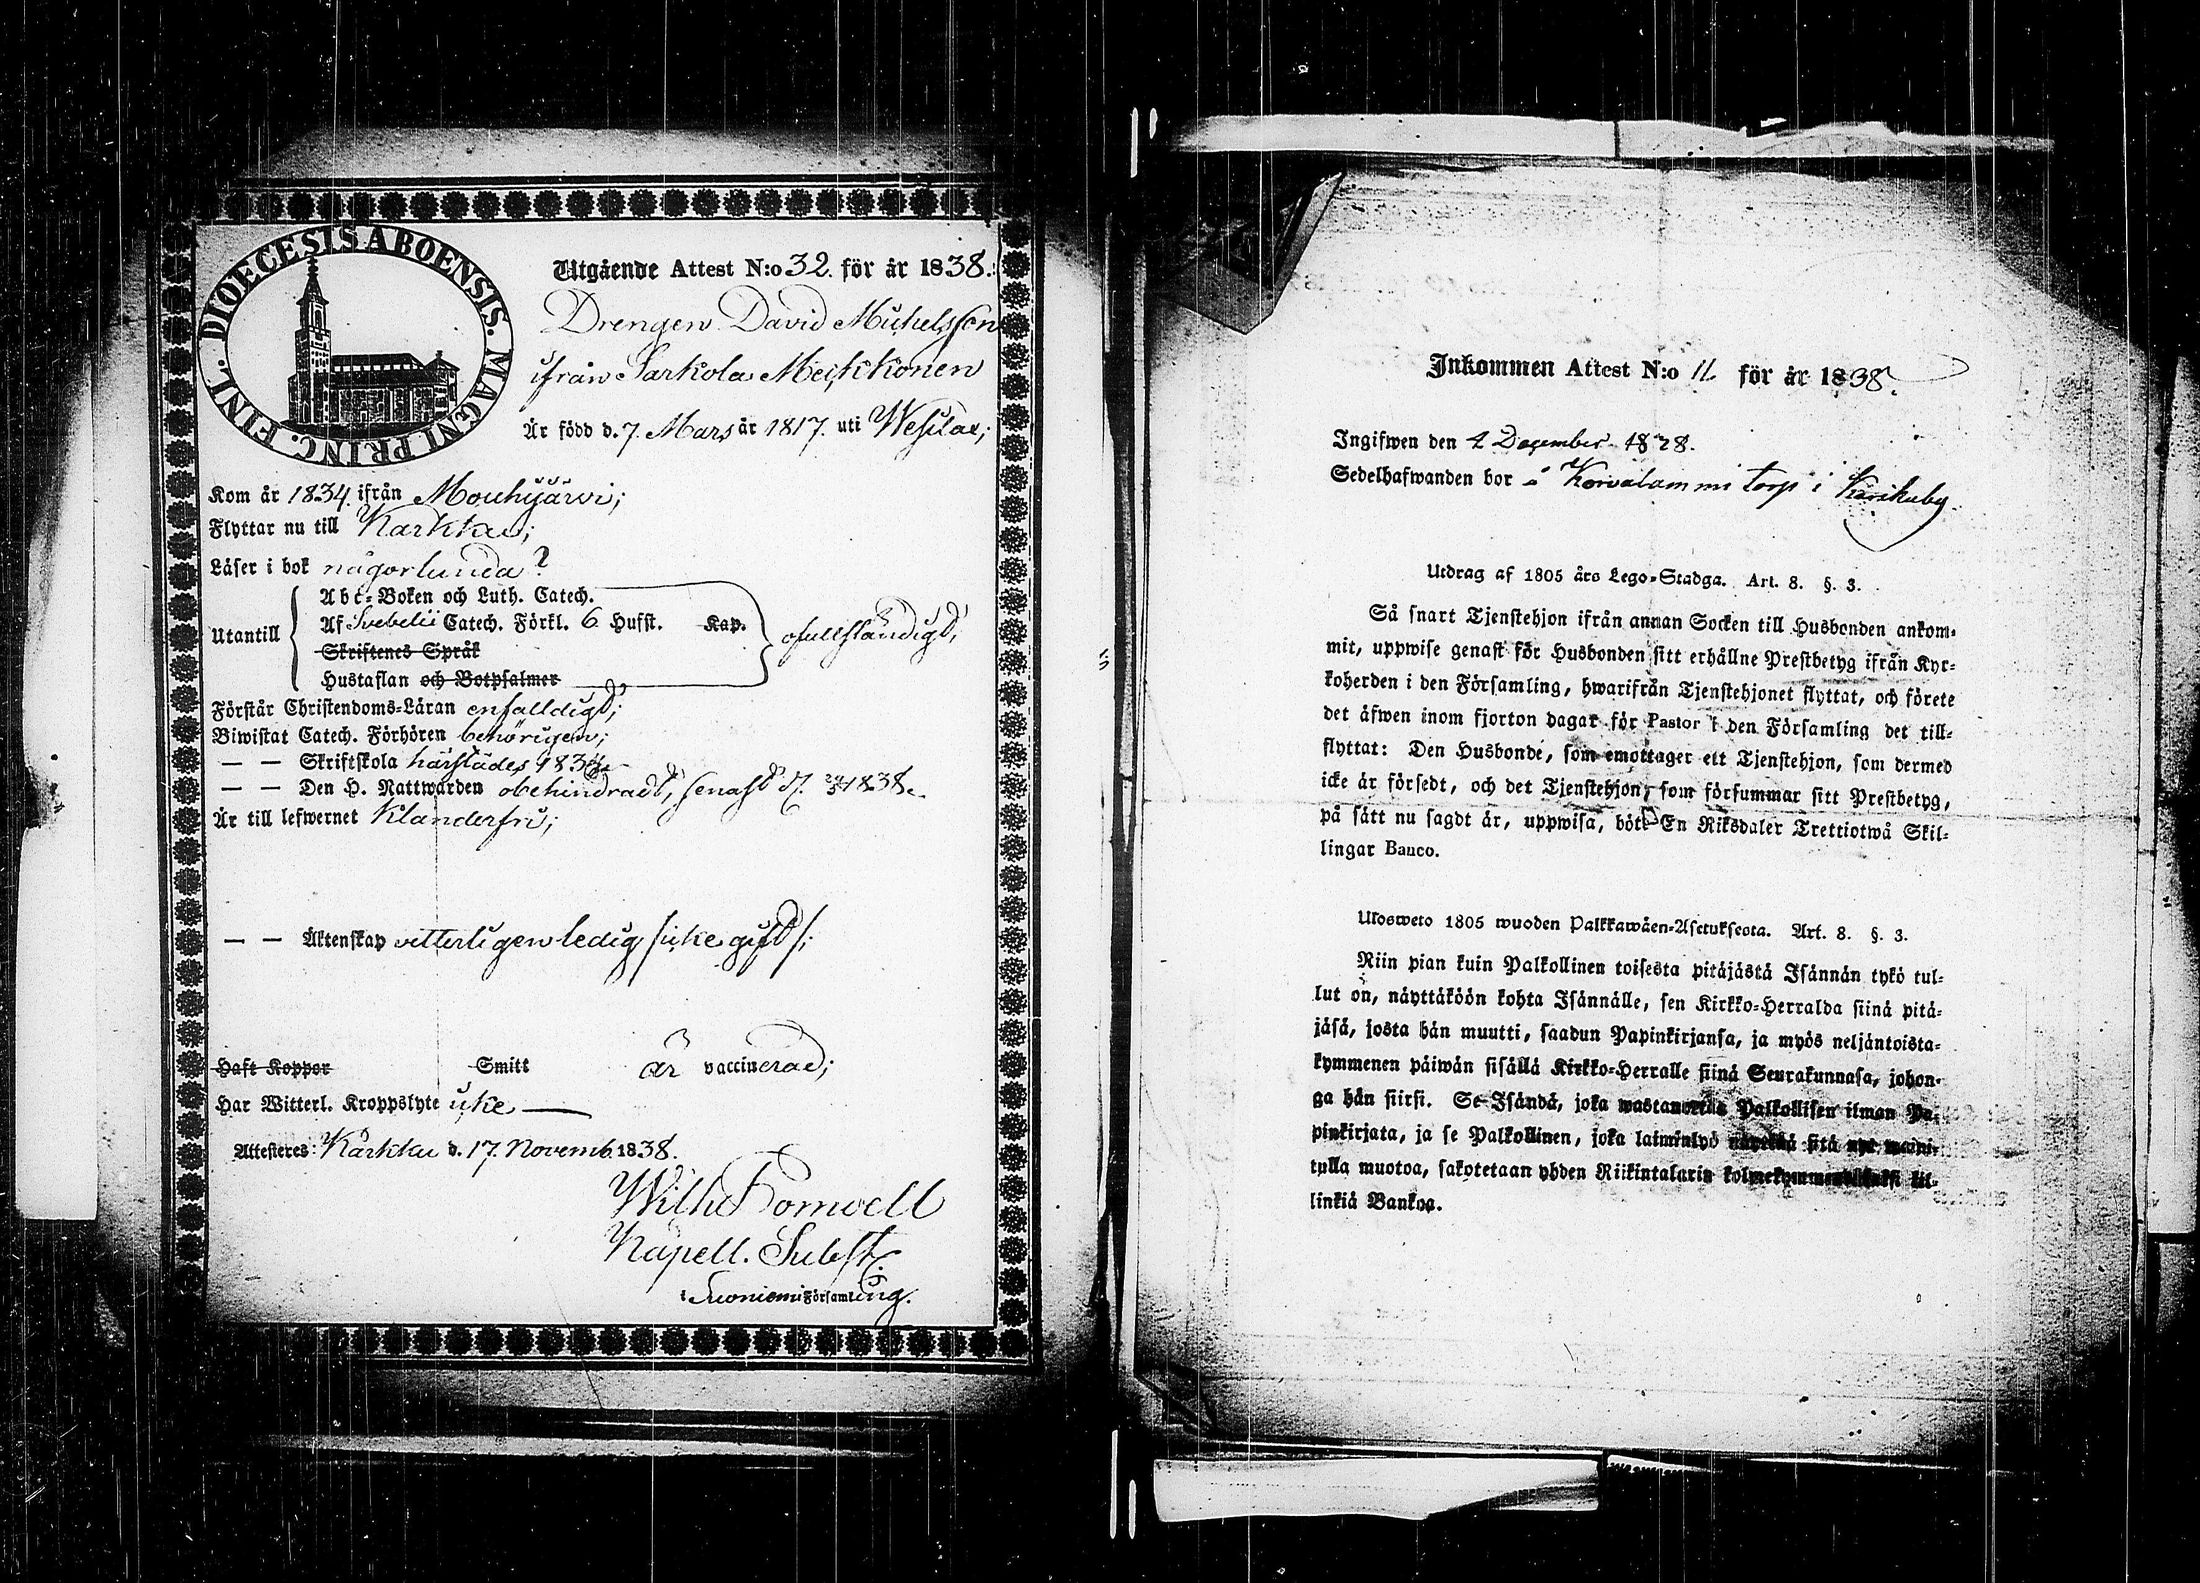 DIOECESIS ABOENSIS. MAGNI PRINC. FINL.
Utgående Attest N:o 32. för år 1838.
Drengen David Michelsson
ifrån Sarkola Meikkonen
Är född d. 7. Mars år 1817. uti Wesilax;
Kom år 1834. ifrån Mouhijärvi;
Flyttar nu till Karkku;
Läser i bok någorlunda
Utantill
Abc-Boken och Luth. Catech.
Af Svebelii Catech. Förkl. 6 Hufst. Kap.
Skriftenes Språk
Hustaflan och Botpsalmer
ofullständigt;
Förstår Christendoms-Läran enfalldigt;
Biwistat Catech. Förhören behörigen;
— — Skriftskola härstädes
— — Den H. Nattwarden obehindradt, senast d. 1838.
Är till lefwernet Klanderfri;
— — Äktenskap vitterligen ledig /:icke gift/:
Haft Koppor Smitt är vaccinerad;
Har Witterl. Kroppslyte icke —
Attesteres: Karkku d. 17. Novemb. 1838.
Wilh.
Kapell. Subst.
i Suoniemi Församling.
Inkommen Attest N:o 11 för år 1838.
Ingifwen den December
Sedelhafwanden bor å Korvalammi torp i
Utdrag af 1805 års Lego-Stadga. Art. 8. §. 3.
Så snart Tjenstehjon ifrån annan Socken till Husbonden ankom-
mit, uppwise genast för Husbonden sitt erhållne Prestbetyg ifrån Kyr-
koherden i den Församling, hwarifrån Tjenstehjonet flyttat, och förete
det äfwen inom fjorton dagar för Pastor i den Församling det till-
flyttat: Den Husbonde, som emottager ett Tjenstehjon, som dermed
icke är försedt, och det Tjenstehjon, som försummar sitt Prestbetyg,
på sätt nu sagdt är, uppwisa, böte En Riksdaler Trettiotwå Skil-
lingar Banco.
Ulosweto 1805 wuoden Palkkawäen-Asetuksesta. Art. 8. §. 3.
Niin pian kuin Palkollinen toisesta pitäjästä Isännän tykö tul-
lut on, näyttäköön kohta Isännälle, sen Kirkko-Herralda siinä pitä-
jäsä, josta hän muutti, saadun Papinkirjansa, ja myös neljäntoista-
kymmenen päiwän sisällä Kirkko-Herralle siinä Seurakunnasa, johon-
ga hän siirsi. Se Isändä, joka wastanottaa Palkollisen ilman Pa-
pinkirjata, ja se Palkollinen, joka laiminlyö näyttää sitä nyt maini-
tulla muotoa, sakotetaan yhden Riikintalarin kolmekymmentäkaksi kil-
linkiä Bankoa.